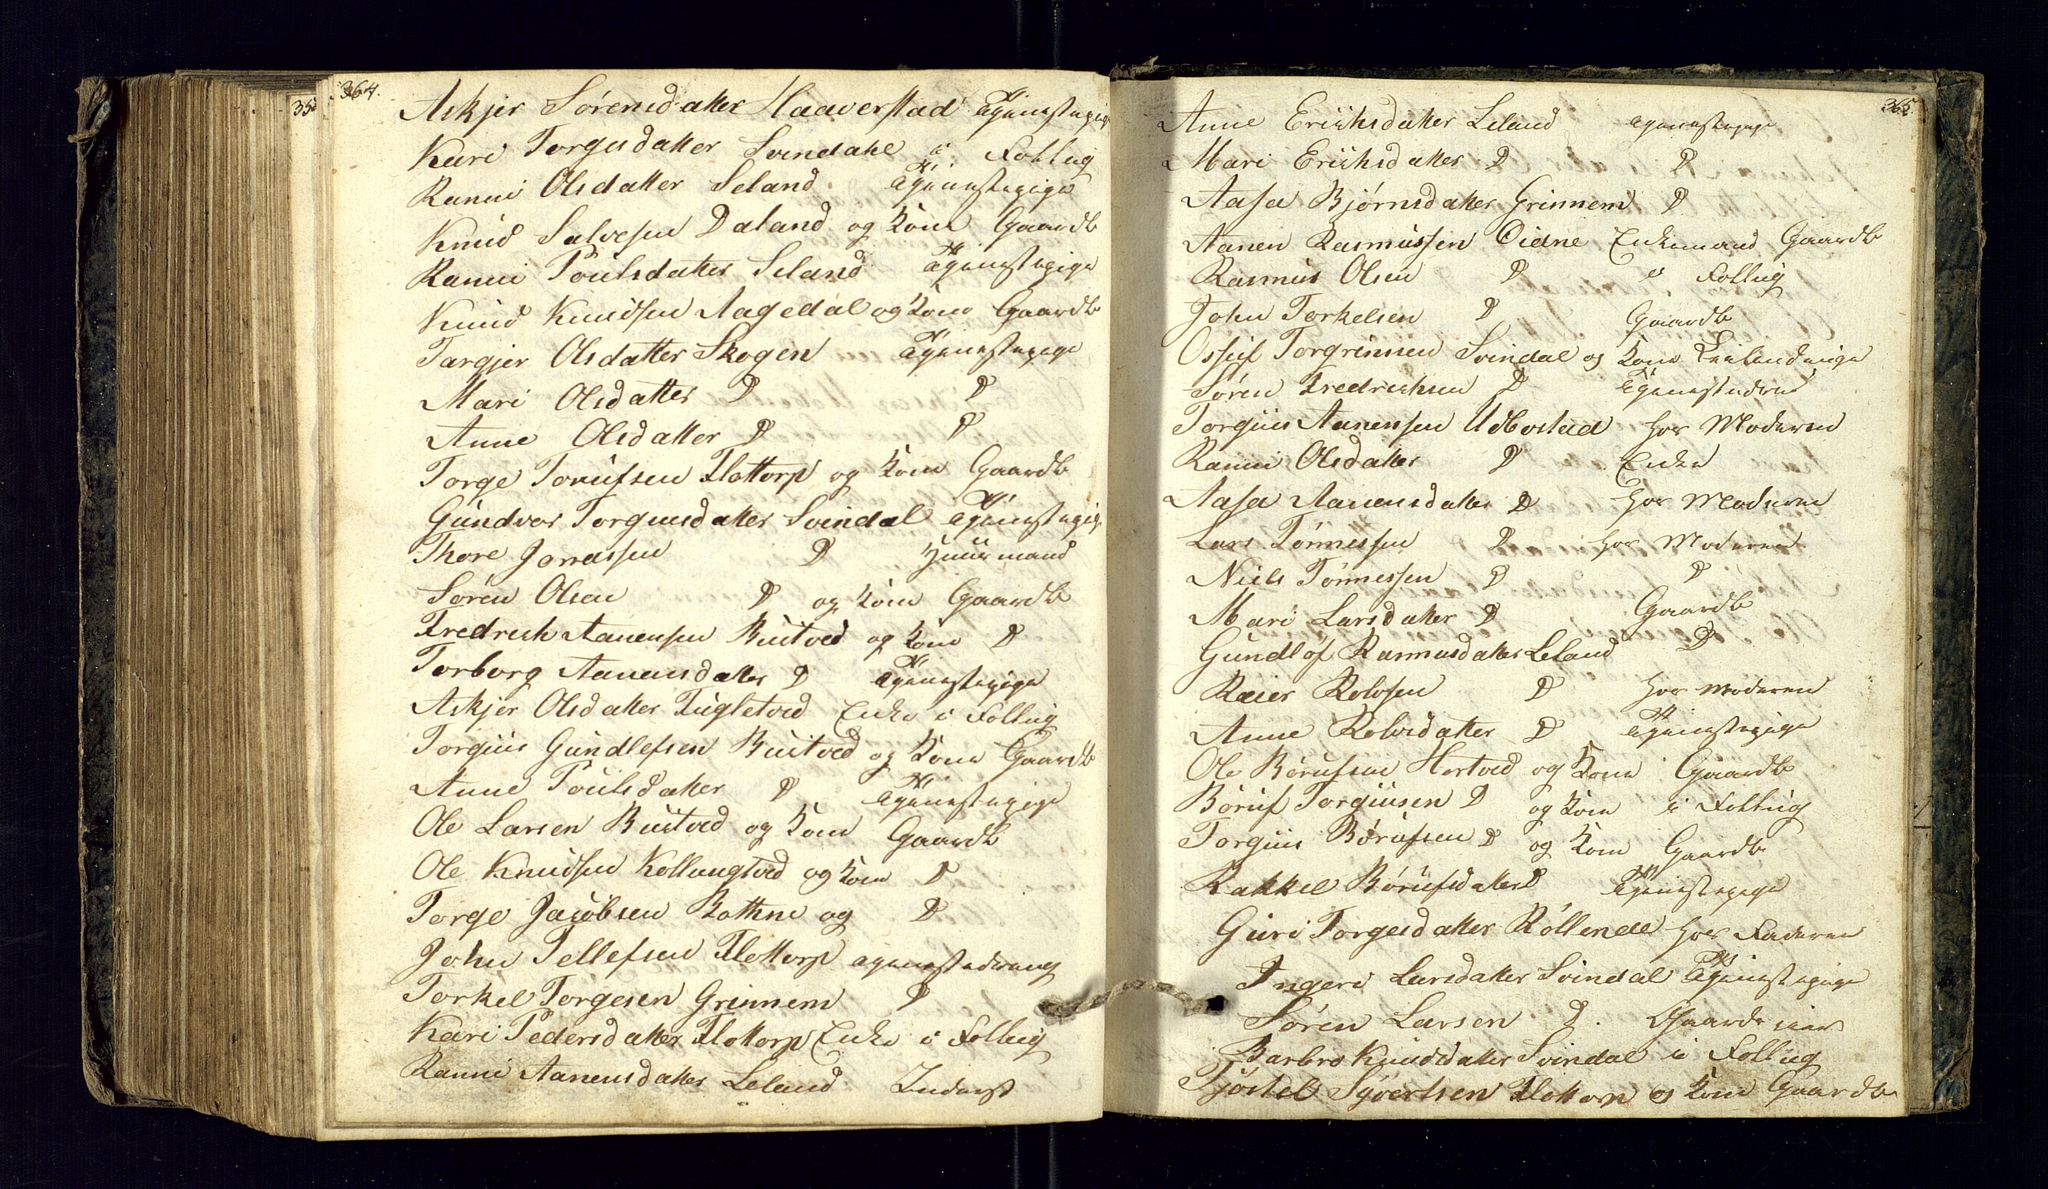 364.
35
Askjer Sørensdatter Haaverstad Tjenestepige
Kari Torgesdatter Svindahl i Follug
Ranni Olsdatter Seland Tjenestepige
Knud Salvesen Daland og Kone Gaardb
Ranni Poulsdatter Seland Tjenestepige
Knud Knudsen Aagedal og Kone Gaardb
Targjer Olsdatter Skogen Tjenestepige
Mari Olsdatter D D
Anne Olsdatter D D
Torge Torufsen Flottorp og Kone Gaardb
Gundvor Torgiusdatter Svindal Tjenestepige
Thore Jonassen D Huusmand
Søren Olsen D og Kone Gaardb
Fredrich Aanensen Bustved og Kone D
Torborg Aanensdatter D Tjenestepige
Askjer Olsdatter Fugletved Enke i Follug
Torgius Gundlefsen Bustved og Kone Gaardb
Anne Poulsdatter D Tjenestepige
Ole Larsen Bustved og Kone Gaardb
Ole Knudsen Kollungtved og Kone D
Torge Jacobsen Bothne og D
John Tellefsen Flottorp Tjenestedreng
Torkel Torgesen Grinnem D
Kari Pedersdatter Flottorp Enke i Follug
Ranni Aanensdatter Leland Inderst
365
Anne Erichsdatter Leland Tjenestepige
Mari Erichsdatter D D
Aasa Bjørnsdatter Grinnem D
Aanen Rasmussen Eidne Enkemand Gaardb
Rasmus Olsen D i Follug
John Torkelsen D Gaardb
Ossuf Torgrimsen Svindal og Kone Leilendinge
Søren Fredrichsen D Tjenestedreng
Torgius Aanensen Udbostad hos Moderen
Ranni Olsdatter D Enke
Aasa Aanensdatter D hos Moderen
Lars Tønnessen D hos Moderen
Niels Tønnessen D D
Mari Larsdatter D Gaardb
Gundløf Rasmusdatter Leland D
Reier Rolvsen D hos Moderen
Anne Rolvsdatter D Tjenestepige
Ole Børufsen Hortved og Kone Gaardb
Børuf Torgiusen D og Kone i Follug
Torgius Børufsen D og Kone Gaardb
Rakkel Børufsdatter D Tjenestepige
Guri Torgesdatter Røllend hos Faderen
Ingeri Larsdatter Svindal Tjenestepige
Søren Larsen D. Gaardeier
Barbro Knudsdatter Svindal i Follug
Tjøstel Syvertsen Flottorp og Kone Gaardb